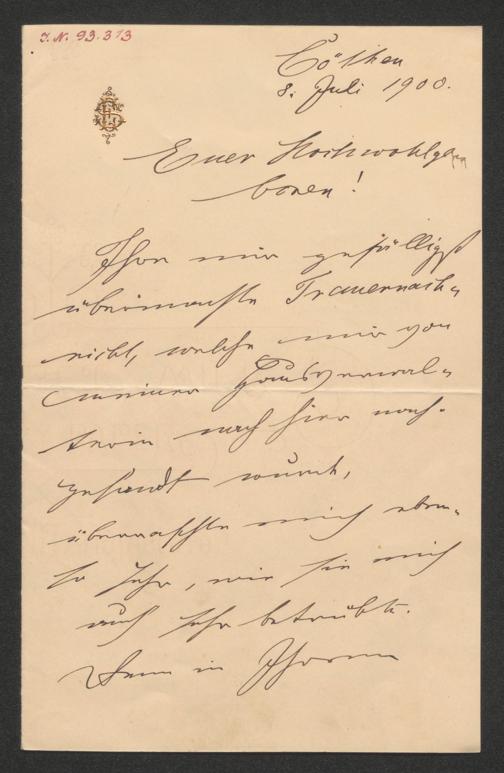 J. N. 93.313
Cöthen
8. Juli 1900.
Euer Hochwohlge-
boren!
Ihre mir gefälligst
übermachte Trauernach-
richt, welche mir von
meiner Hausverwal-
terin nach hier nach-
gesandt wurde,
überraschte mich eben-
so sehr, wie sie mich
auch sehr betrübte.
Denn in Ihrem